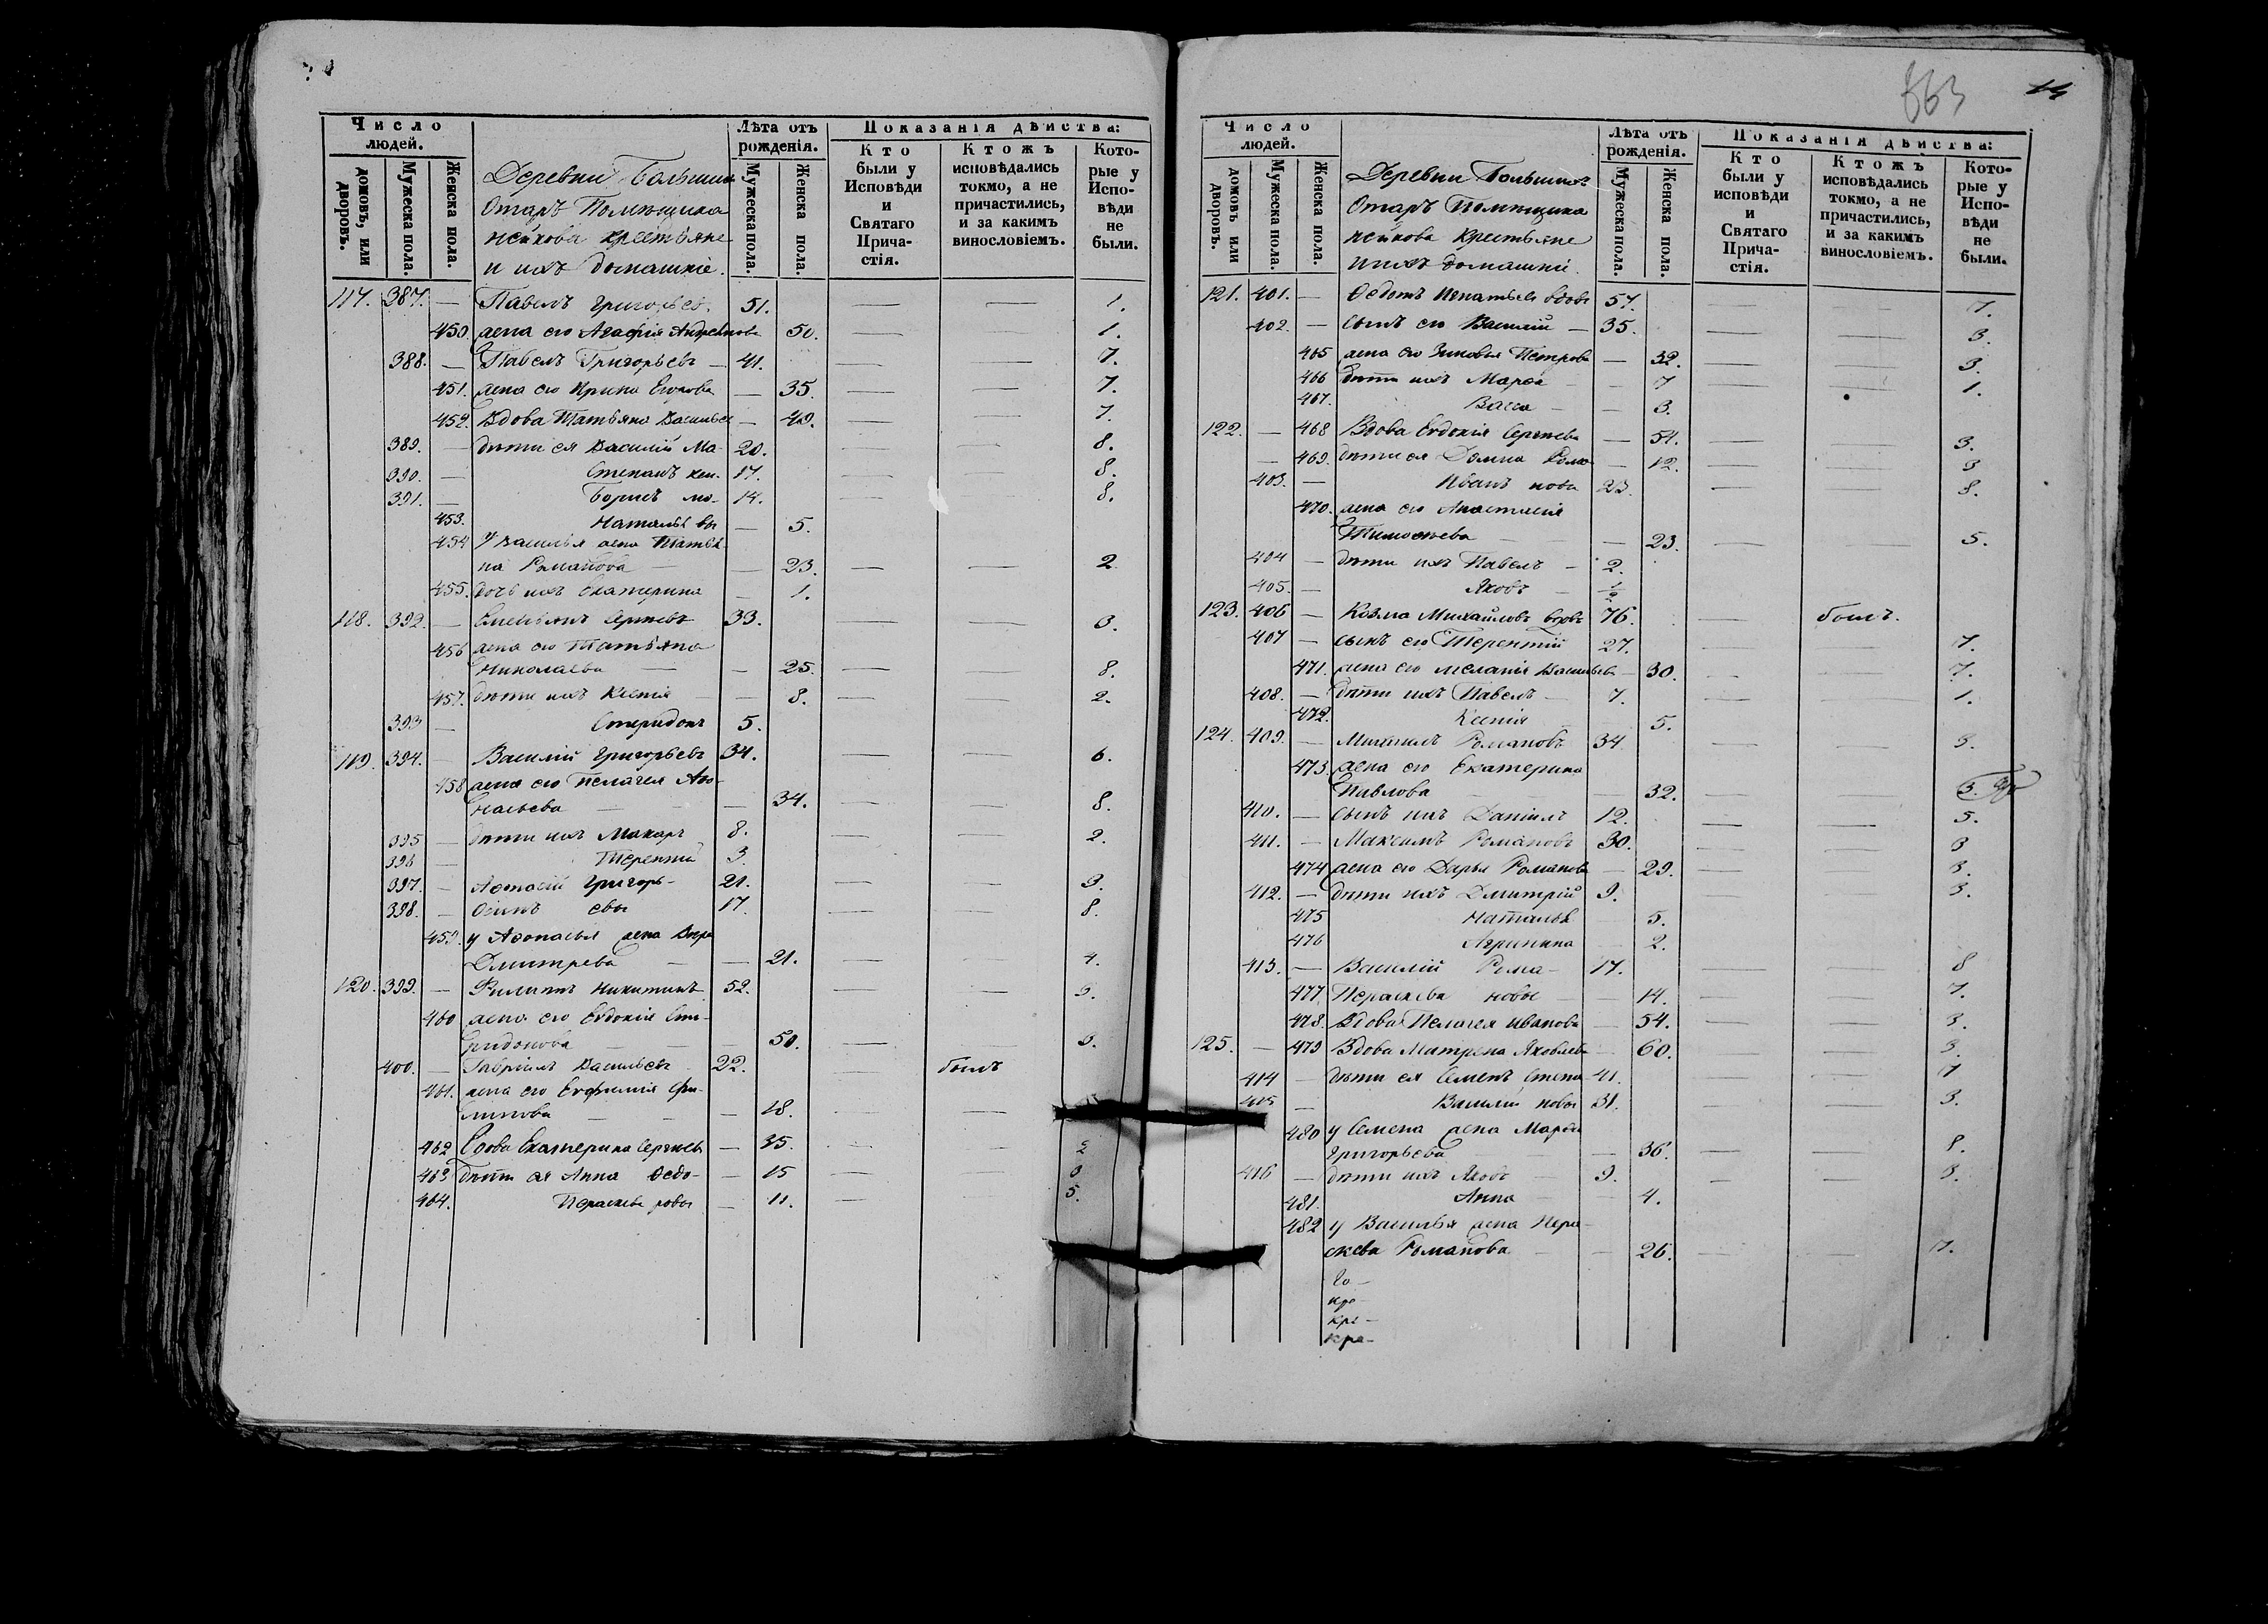 663 14
Число людей. Лѣта отъ рожденія. Показанія дѣйства:
домовъ, или дворовъ. Мужеска пола. Женска пола. Мужеска пола. Женска пола. Кто были у Исповѣди и Святаго Прича-стія. Ктожъ исповѣдались токмо, а не причастились, и за какимъ винословіемъ. Кото-рые у Испо-вѣди не были.
Деревни Большихъ
Отаръ Помѣщика
крестьяне
и ихъ домашніе.
117. 387. — Павелъ Григорьевъ 51. — — 1.
450. жена его Агафія Андреянова 50. — — 1.
388. — Павелъ Григорьевъ — 41. — — 7.
451. жена его Ирина — 35. — — 7.
452. Вдова Татьяна Васильев — 40. — — 7.
389. — дѣти ея Василій Ма- 20. — — 8.
390. — Степанъ 17. — — 8.
391. — Борисъ мо- 14. — — 8.
453. Наталья вы — 5.
454 у Василья жена Татья-
на Романова — — 23. — — 2
455. дочь ихъ Екатерина — 1.
118. 392. — Сергѣевъ 33. — — 3.
456 жена его Татьяна
Николаева — — 25. — — 8.
457. дѣти ихъ Ксенія — — 8. — — 2.
393 — Спиридонъ 5.
119. 394. — Василій Григорьевъ 34. — — 6.
458 жена его Пелагея Аѳо-
насьева — — 34. — — 8.
395 — дѣти ихъ Макаръ 8. — — 2.
396 — Терентій 3.
397. — Аѳонасій Григорь- 21. — — 3.
398. — Осипъ евы 17. — — 8.
459. у Аѳонасья жена Вѣра
Дмитрева — — 21. — — 4.
120. 399. — Филиппъ Никитинъ 52. — — 3.
460 жена его Евдокія Спи-
ридонова — — 50. — — 3.
400. — Гавріилъ Васильевъ 22. — былъ
461. жена его Евфимія Фи-
липова — — 18. — —
462 Вдова Екатерина Сергѣев — 35. — — 2
463 дѣти ея Анна Ѳедо- — 15 — — 3
464. Параскева ровы — 11. — — 5.
Число людей. Лѣта отъ рожденія. Показанія дѣйства:
домовъ или дворовъ. Мужеска пола. Женска пола. Мужеска пола. Женска пола. Кто были у исповѣди и Святаго Прича-стія. Ктожъ исповѣдались токмо, а не причастились, и за какимъ винословіемъ. Кото-рые у Испо-вѣди не были.
Деревни Большихъ
Отаръ Помѣщика
крестьяне
и ихъ домашніе.
121. 401. — Ѳедотъ Игнатьевъ вдовъ 57. — — 7.
402. — сынъ его Василій — 35. — — 3.
465 жена его Зиновья Петрова — 32. — — 3.
466 дѣти ихъ Марѳа — — 7 — — 1.
467. Васса — — 3.
122. — 468 Вдова Евдокія Сергѣева — 54. — — 3.
— 469. дѣти ея Домна Рома- — 12. — — 3
403. — Иванъ новы 23. — — 8.
470. жена его Анастасія
Тимоѳеева — — 23. — — 5.
404 — дѣти ихъ Павелъ — 2.
405. — Яковъ — ½
123. 406 — Козма Михайловъ вдовъ 76. — былъ.
407 — сынъ его Терентій 27. — — 7.
471. жена его Меланія Васильев — 30. — — 7.
408. — дѣти ихъ Павелъ — 7. — — 1.
472. Ксенія 5.
124. 409. — Михаилъ Романовъ 34. — — 3.
473. жена его Екатерина
Павлова — 32. — — 3.
410. — сынъ ихъ Даніилъ 12. — — 5.
411. — Максимъ Романовъ 30. — — 3
474 жена его Дарья Романова — 29. — — 3.
412. — дѣти ихъ Дмитрій 9. — — 3.
475 Наталья — 5.
476 Агрипина — 2.
413. — Василій Рома- 17. — — 8
477. Параскева новы — 14. — — 7.
478. Вдова Пелагея Иванова — 54. — — 3.
125. — 479 Вдова Матрена Яковлева — 60. — — 3.
414 — дѣти ея Семенъ Степа- 41. — — 7
415 — Василій новы 31. — — 3.
480 у Семена жена Марѳа
Григорьева — 36. — — 8.
416 — дѣти ихъ Яковъ — 9. — — 3.
481. Анна — 4.
482 у Василья жена Пара-
скева Романова — — 26. — — 7.